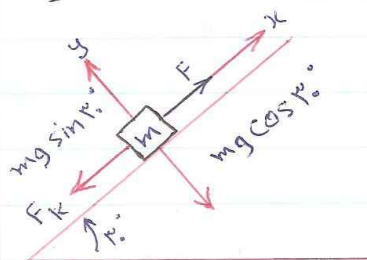 y
x
F
mg sin ۳۰
m
mg cos ۳۰
F_k
۳۰